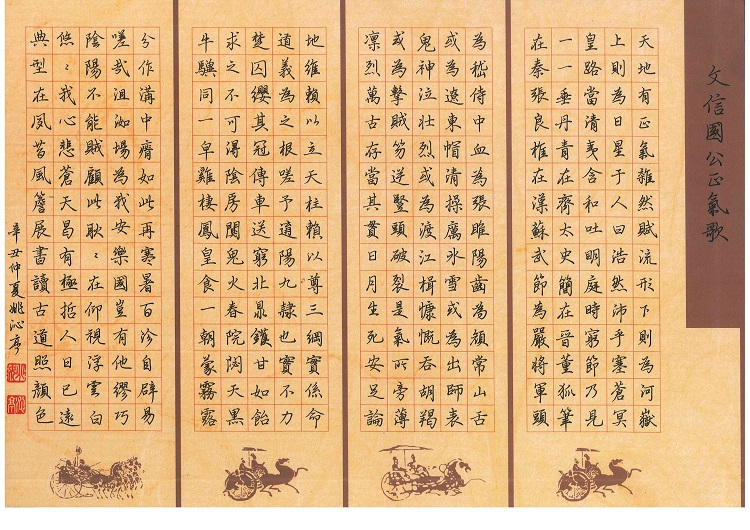 文信國公正氣歌
天地有正氣雜然賦流形下則為河嶽
上則為日星于人曰浩然沛乎塞蒼冥
皇路當清夷含和吐明庭時窮節乃見
一一垂丹青在齊太史簡在晉董狐筆
在秦張良椎在漢蘇武節為嚴將軍頭
為嵇侍中血為張睢陽齒為顏常山舌
或為遼東帽清操厲冰雪或為出師表
鬼神泣壯烈或為渡江楫慷慨吞胡羯
或為擊賊笏逆豎頭破裂是氣所旁薄
凛烈萬古存當其貫日月生死安足論
地維賴以立天柱賴以尊三綱實係命
道義為之根嗟予遘陽九隸也實不力
楚囚纓其冠傳車送窮北鼎鑊甘如飴
求之不可得陰房闃鬼火春院閟天黑
牛驥同一皁雞棲鳳皇食一朝蒙霧露
兮作溝中瘠如此再寒暑百沴自辟易
嗟哉沮洳場為我安樂國豈有他繆巧
陰陽不能賊顧此耿〻在仰視浮雲白
悠〻我心悲蒼天曷有極哲人日已遠
典型在夙昔風簷展書讀古道照顏色
辛丑仲夏姚沁亭